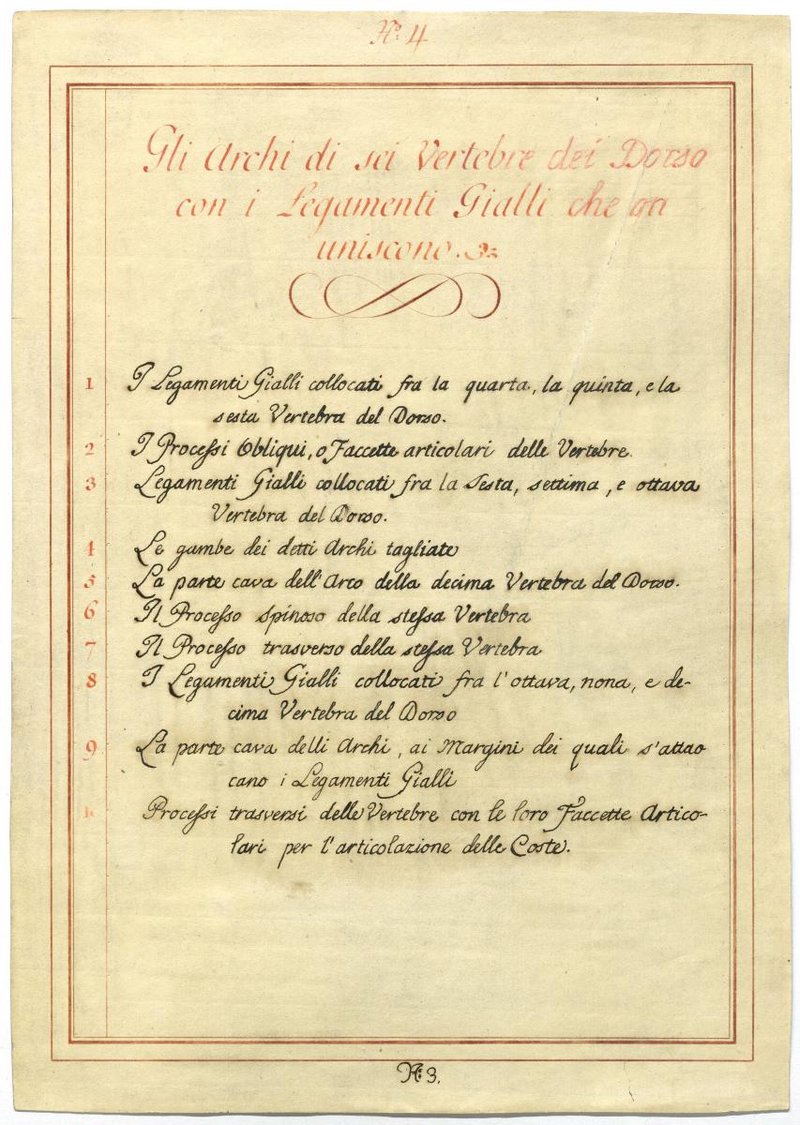 N.º 4
Gli Archi di sei Vertebre del Dorso
con i Legamenti Gialli che
uniscono.
1 I Legamenti Gialli collocati fra la quarta, la quinta, e la
sesta Vertebra del Dorso.
2 I Processi Obliqui, o Faccette articolari delle Vertebre.
3 Legamenti Gialli collocati fra la Sesta, settima, e ottava
Vertebra del Dorso.
4 Le gambe dei detti Archi tagliate
5 La parte cava dell'Arco della decima Vertebra del Dorso.
6 Il Processo spinoso della stessa Vertebra
7 Il Processo trasverso della stessa Vertebra
8 I Legamenti Gialli collocati fra l'ottava, nona, e de-
cima Vertebra del Dorso
9 La parte cava delli Archi, ai Margini dei quali s'attac
cano i Legamenti Gialli
Processi trasversi delle Vertebre con le loro Faccette Artico-
lari per l'articolazione delle Coste.
N.º 3.